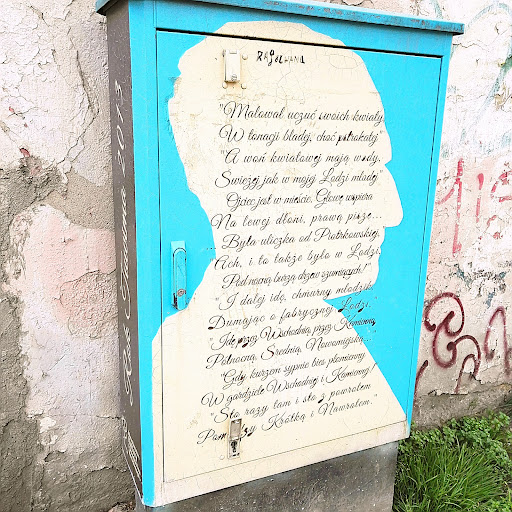 "Malował uczuć swoich kwiaty,
W tonacji bladej, choć pstrokatej"
"A woń kwiatowej mają wody,
Świeżej jak w mojej Łodzi młodej"
Ojciec jest w mieście. Głowę wspiera
Na lewej dłoni, prawą pisze...
Była uliczka od Piotrkowskiej,
Ach, i to także było w Łodzi,
Pod nocną burzą drzew szumiących!
"I dalej idę, chmurny młodzik,
Dumając o fabrycznej Łodzi,
"Idę przez Wschodnią, przez Kamienną,
Północną, Średnią, Nowomiejską...
"Gdy kurzem sypnie bies płomienny
W gardziele Wschodniej i Kamiennej!
"Sto razy tam i sto z powrotem
Krótką i Nawrotem."
2013